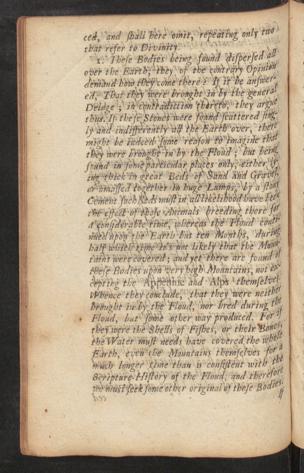 ced, and shall here omit, repeating only two
that refer to Divinity.
1. These Bodies being found dispersed all
over the Earth, they of the contrary Opinion
demand how they come there? If it be answer-
ed, That they were brought in by the general
Deluge; in contradiction thereto, they argue
thus. If these Stones were found scattered sing-
ly and indifferently all the Earth over, there
might be indeed some reason to imagine that
they were brought in by the Flood; but being
found in some particular places only, either ly-
ing thick in great Beds of Sand and Gravel,
or amassed together in huge Lumps, by a stony
Cement such Beds must in all likelihood have been
the effect of those Animals breeding there for
a considerable time, whereas the Flood conti-
nued upon the Earth but ten Months, during
half which time it's not likely that the Moun-
tains were covered; and yet there are found of
these Bodies upon very high Mountains, not ex-
cepting the Appennine and Alps themselves.
Whence they conclude, that they were neither
brought in by the Flood, nor bred during the
Flood, but some other way produced. For if
they were the Shells of Fishes, or their Bones,
the Water must needs have covered the whole
Earth, even the Mountains themselves for a
much longer time than is consistent with the
Scripture-History of the Flood, and therefore
we must seek some other original of these Bodies.
If